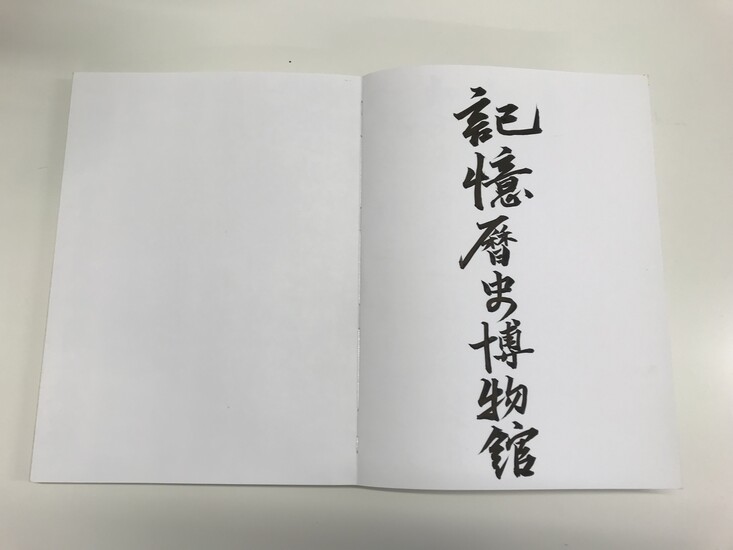 記憶暦史博物館